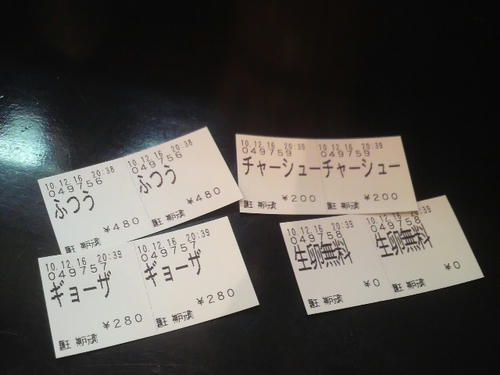 10.12.16 20:38
049756
ふつう
¥480
10.12.16 20:38
049756
ふつう
¥480
10.12.16 20:39
049759
チャーシュー
¥200
10.12.16 20:39
049759
チャーシュー
¥200
10.12.16 20:39
049757
ギョーザ
¥280
10.12.16 20:39
049757
ギョーザ
¥280
10.12.16 20:39
049758
¥0
10.12.16 20:39
049758
¥0